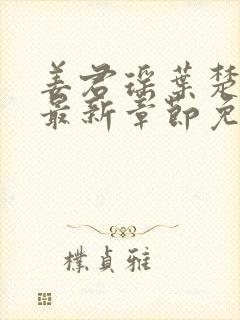 姜君瑶葉楚
最新章節免
樸貞雅